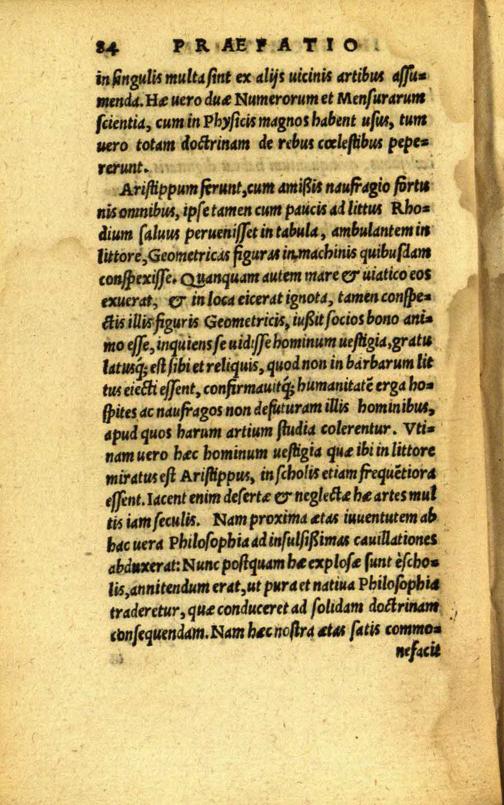 84 PRÆFATIO
in singulis multa sint ex alijs uicinis artibus assu=
menda. Hæ uero duæ Numerorum et Mensurarum
scientia, cum in Physicis magnos habent usus, tum
uero totam doctrinam de rebus cœlestibus pepe=
rerunt.
Aristippum ferunt, cum amißis naufragio fortu
nis omnibus, ipse tamen cum paucis ad littus Rho=
dium saluus peruenisset in tabula, ambulantem in
littore, Geometricas figuras in machinis quibusdam
conspexisse. Quanquam autem mare & uiatico eos
exuerat, & in loca eicerat ignota, tamen conspe=
ctis illis figuris Geometricis, iußit socios bono ani=
mo esse, inquiens se uidisse hominum uestigia, gratu
latusq́; est sibi et reliquis, quod non in barbarum lit
tus eiecti essent, confirmauitq́; humanitatē erga ho=
spites ac naufragos non defuturam illis hominibus,
apud quos harum artium studia colerentur. Vti=
nam uero hæc hominum uestigia quæ ibi in littore
miratus est Aristippus, in scholis etiam frequētiora
essent. Iacent enim desertæ & neglectæ hæ artes mul
tis iam seculis. Nam proxima ætas iuuentutem ab
hac uera Philosophia ad insulsißimas cauillationes
abduxerat: Nunc postquam hæ explosæ sunt è scho=
lis, annitendum erat, ut pura et natiua Philosophia
traderetur, quæ conduceret ad solidam doctrinam
consequendam. Nam hæc nostra ætas satis commo=
nefacit